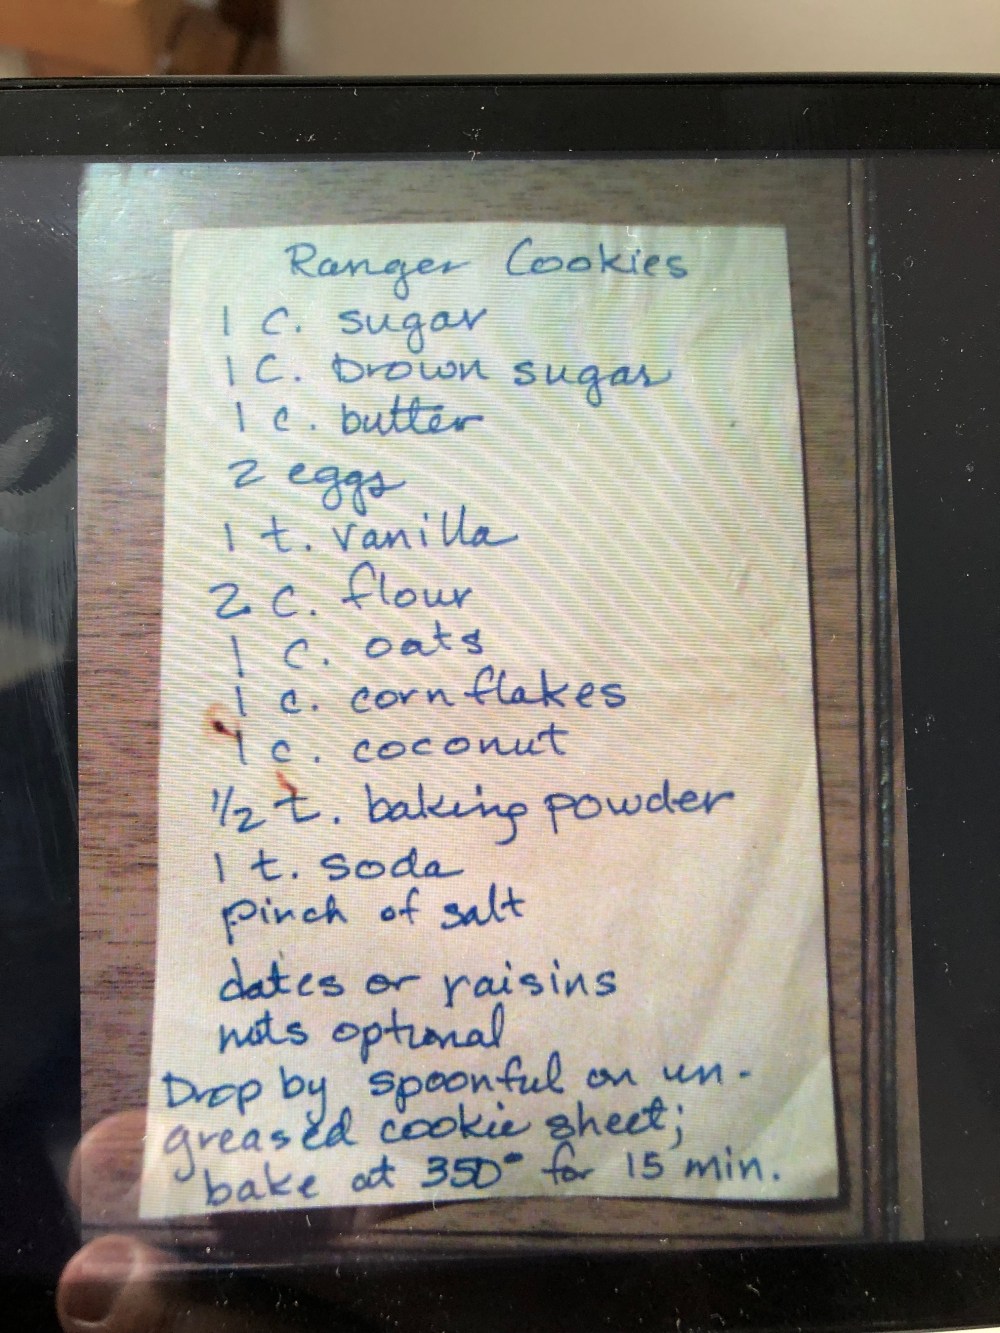 Ranger Cookies
1 C. sugar
1 C. brown sugar
1 c. butter
2 eggs
1 t. vanilla
2 C. flour
1 C. oats
1 c. corn flakes
1 c. coconut
1/2 t. baking powder
1 t. soda
pinch of salt
dates or raisins
nuts optional
Drop by spoonful on un-
greased cookie sheet;
bake at 350° for 15 min.